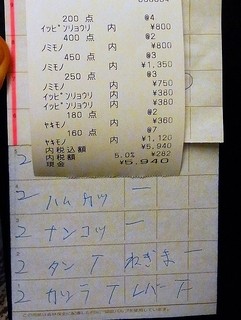 200 点 @4
イッピンリョウリ 内 ¥800
400 点 @2
ノミモノ 内 ¥800
450 点 @3
ノミモノ 内 ¥1,350
250 点 @3
ノミモノ 内 ¥750
イッピンリョウリ 内 ¥380
イッピンリョウリ 内 ¥380
180 点 @2
ヤキモノ 内 ¥360
160 点 @7
ヤキモノ 内 ¥1,120
内税込額 ¥5,940
内税額 5.0% ¥282
現金 ¥5,940
2 ハムカツ 一
2 ナンコツ 一
2 タン T ねぎま 一
2 カシラ T レバー T